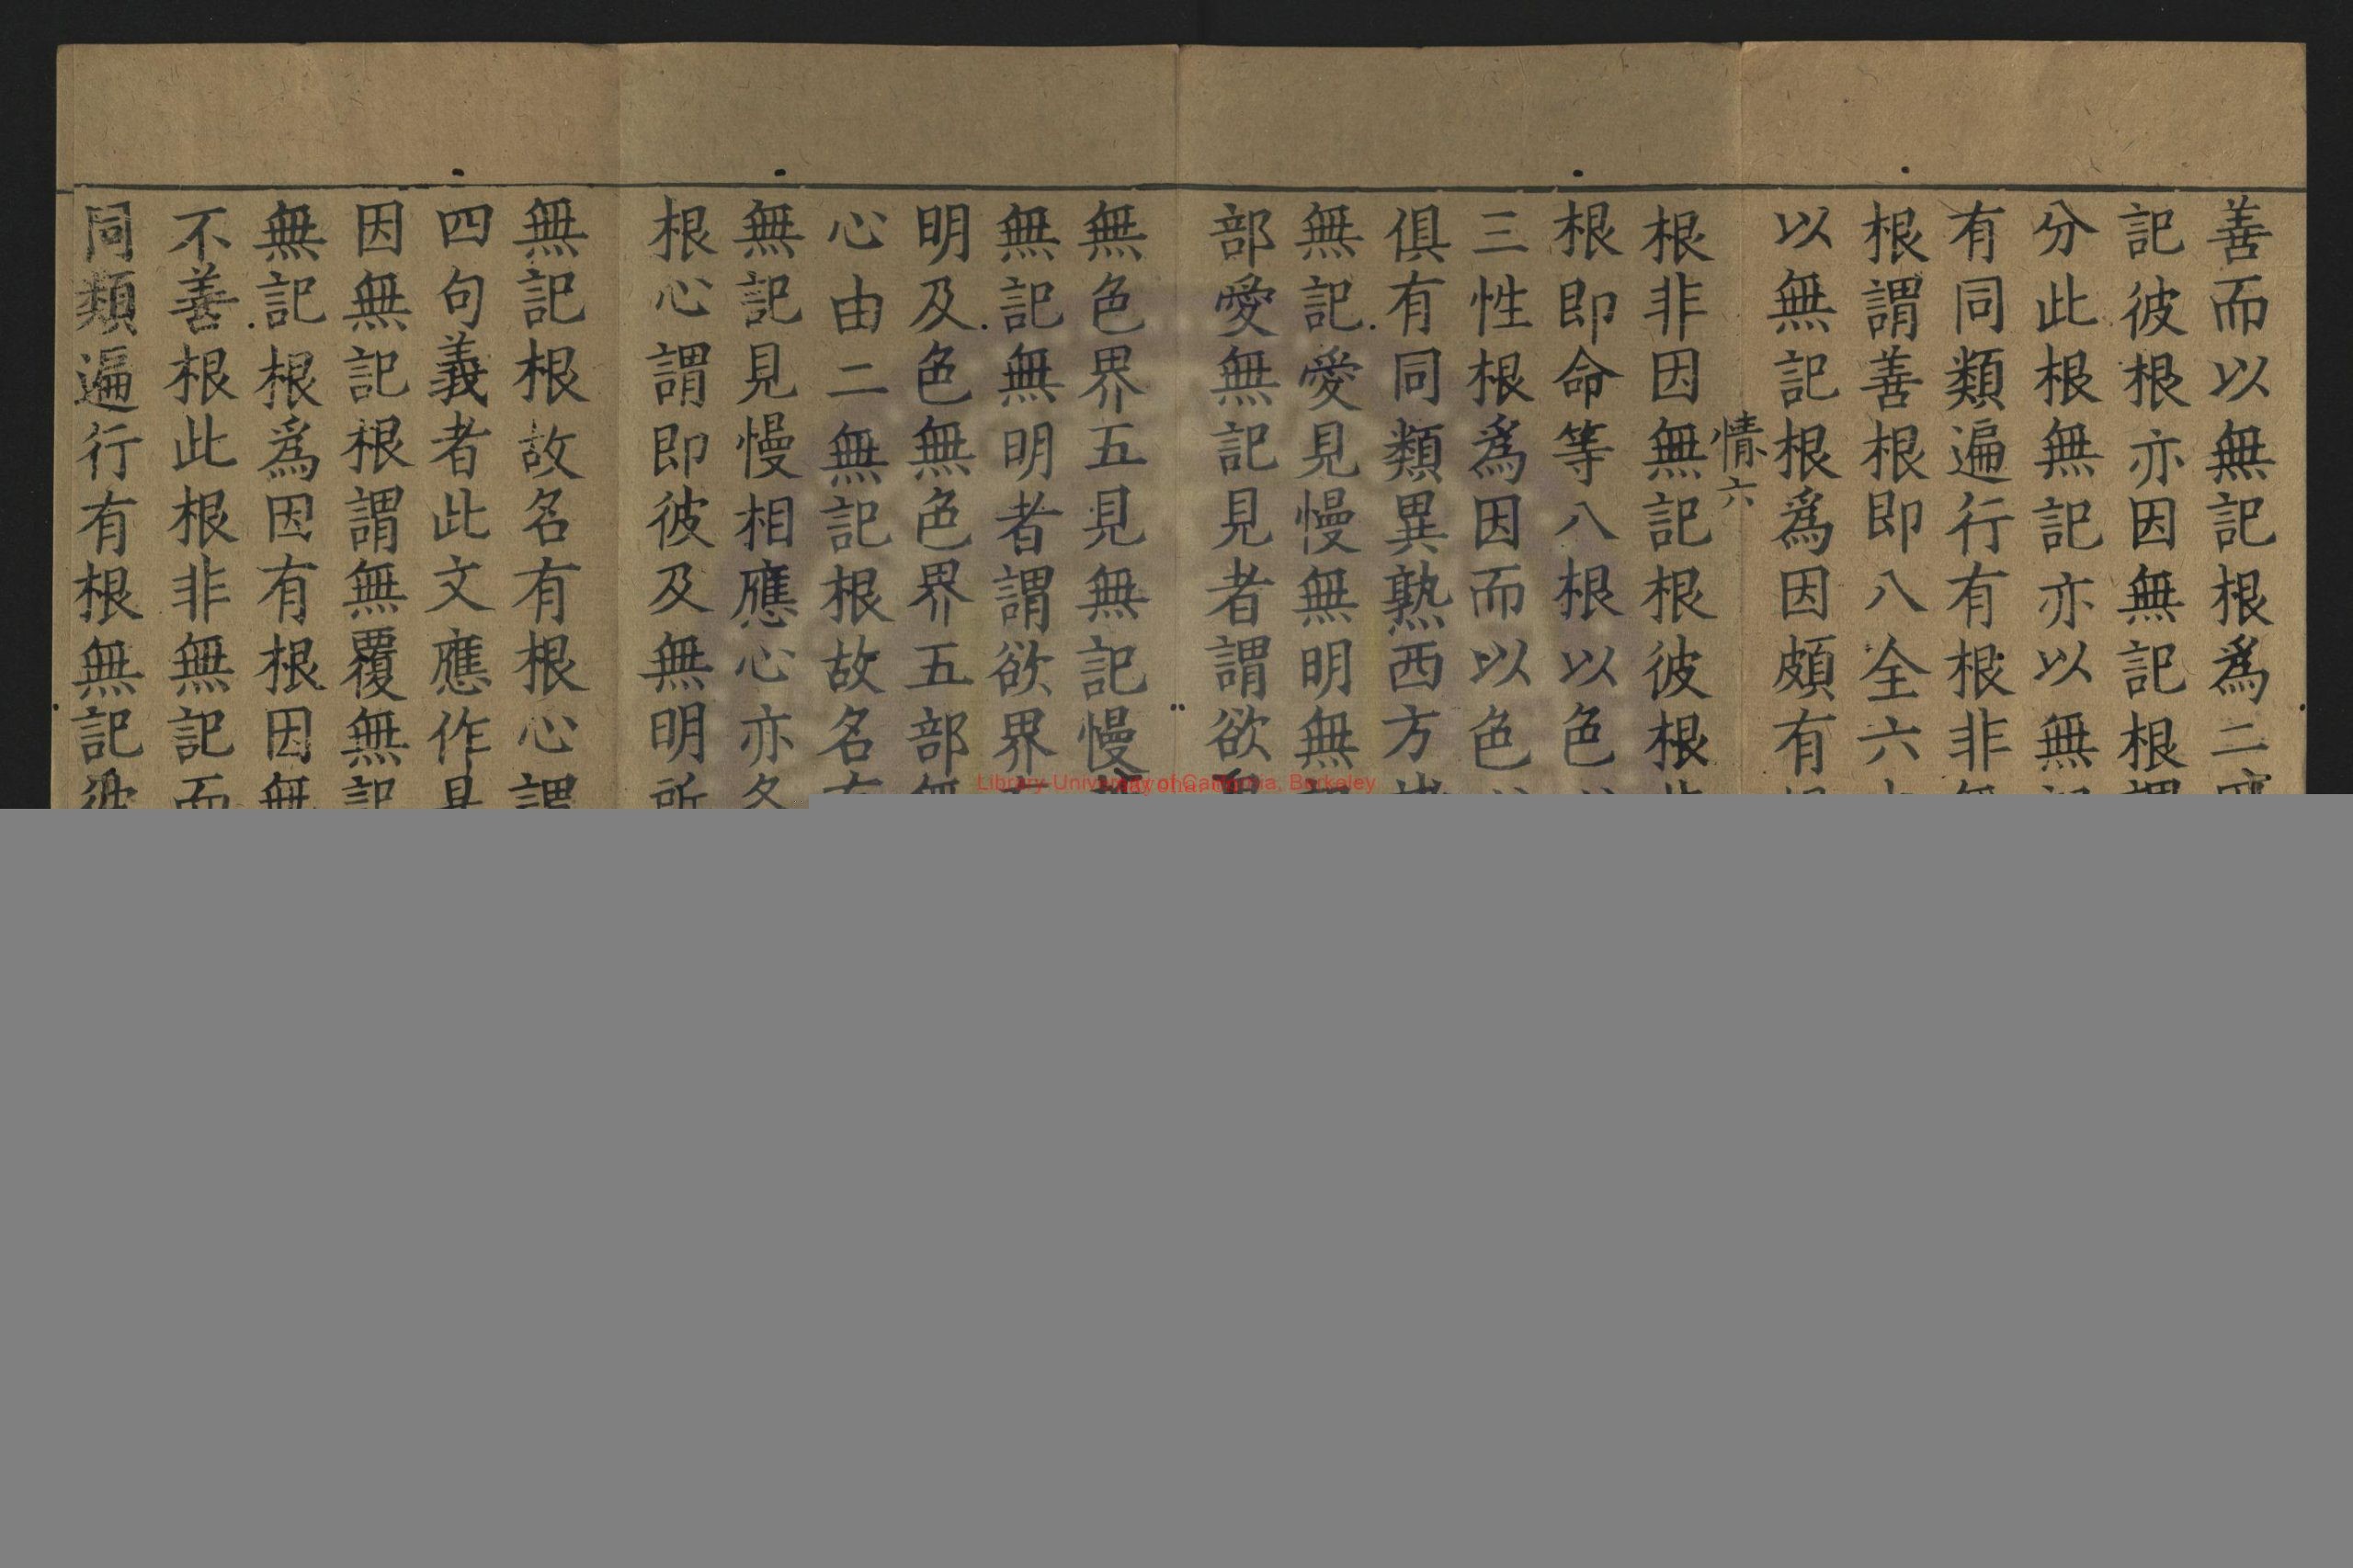 善而以無記根爲二
記彼根亦因無記根謂
分此根無記亦以無記
有同類遍行有根非無
根謂善根即八全六
以無記根爲因頗有
情六
根非因無記根彼根非
根即命等八根以色
三性根爲因而以色
俱有同類異熟西方
無記愛見慢無明無記
部愛無記見者謂欲
無色界五見無記慢
無記無明者謂欲界
明及色無色界五部無
心由二無記根故名有
無記見慢相應心亦名
根心謂即彼及無明所
無記根故名有根心謂
四句義者此文應作是
因無記根謂無覆無記
無記根爲因有根因無
不善根此根非無記而
同類遍行有根無記彼
Library University of California, Berkeley